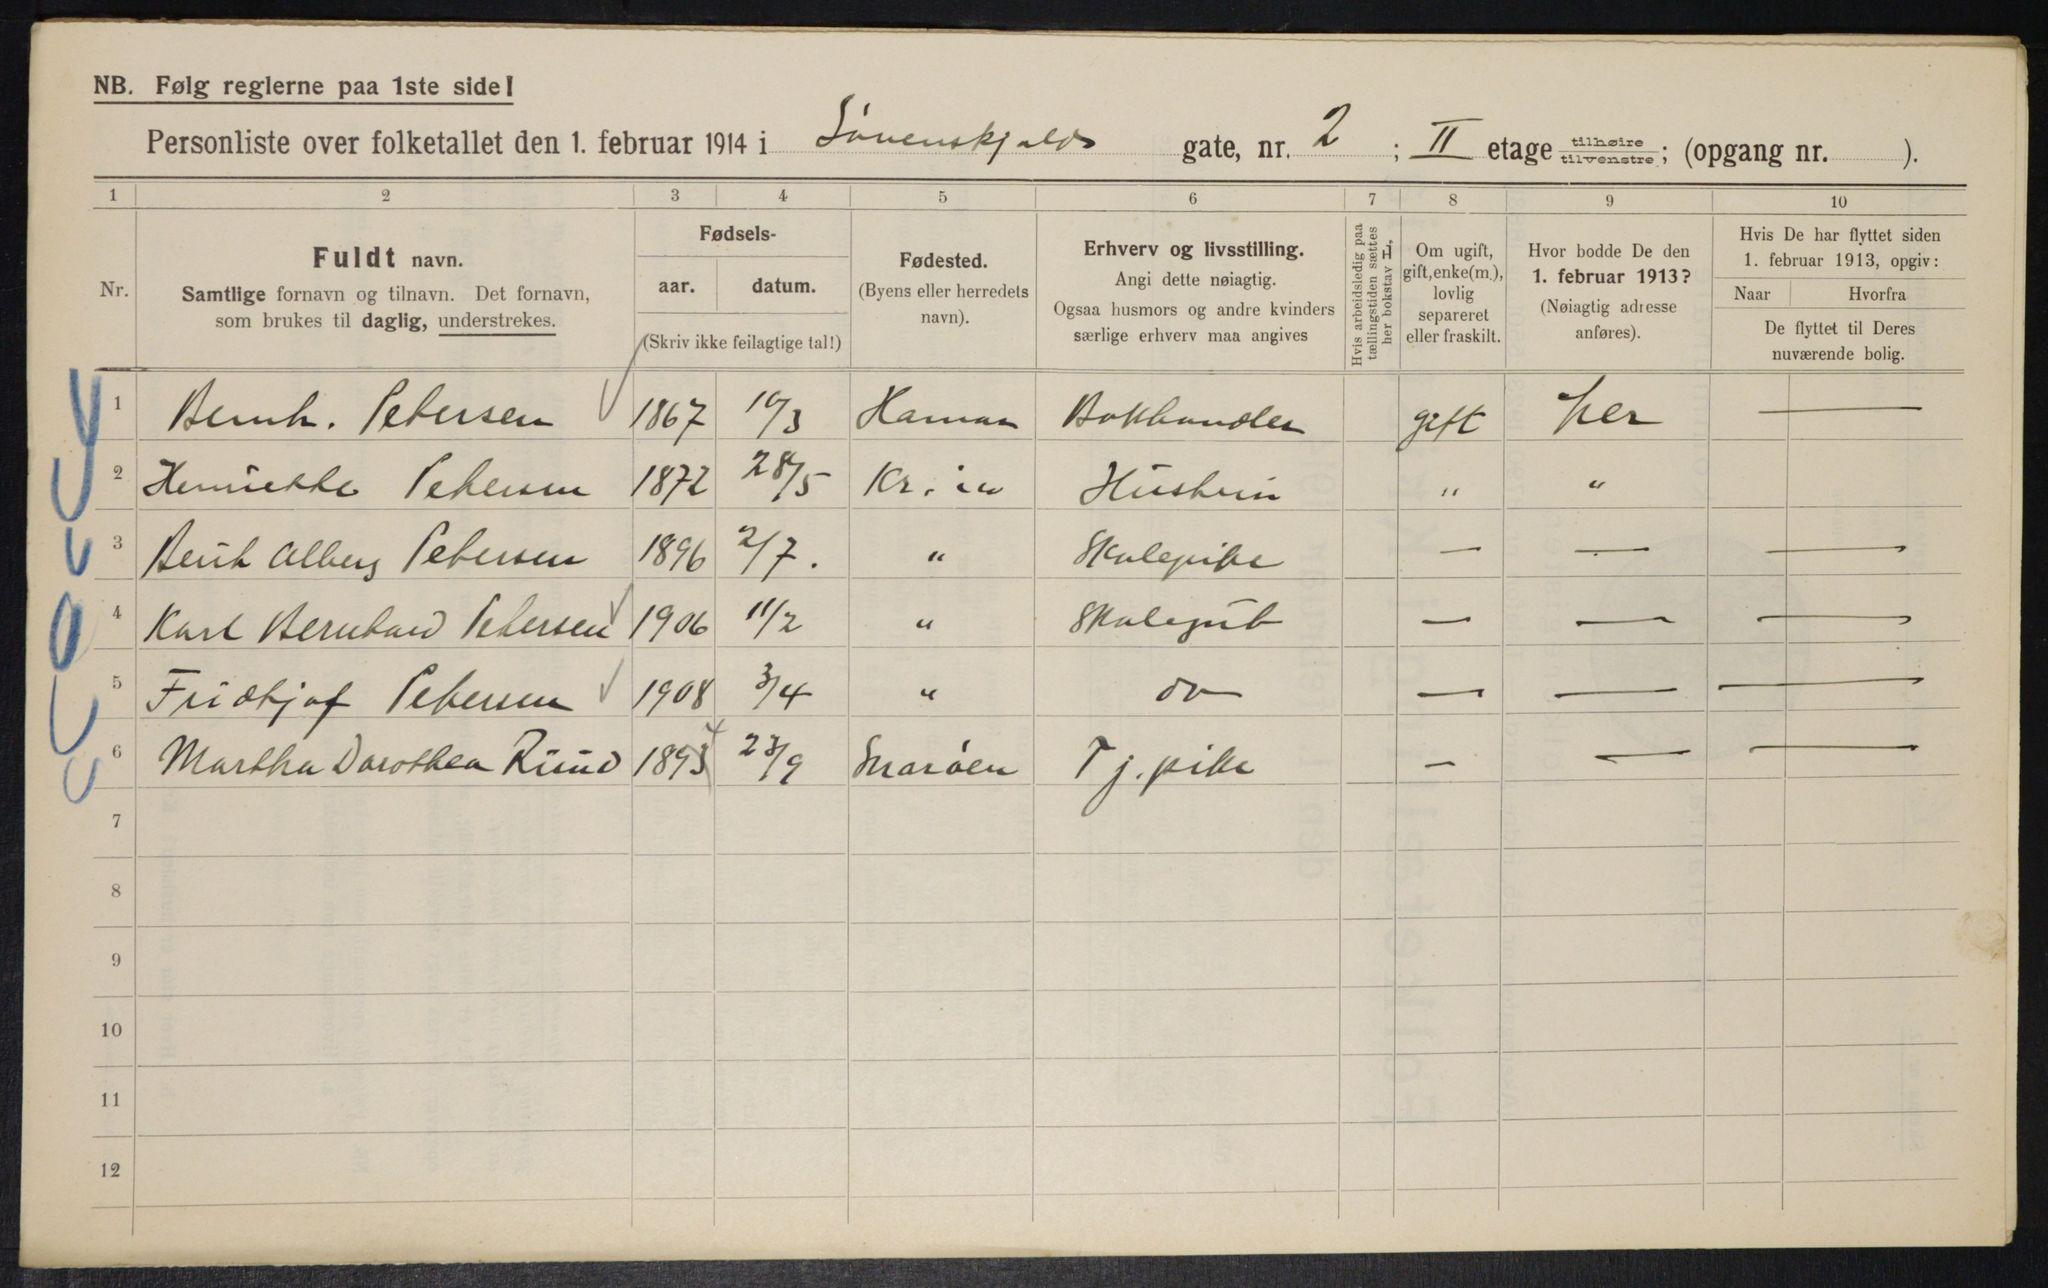 NB. Følg reglerne paa 1ste side!
Personliste over folketallet den 1. februar 1914 i Løvenskjolds gate, nr. 2 ; II etage tilhøire tilvenstre; (opgang nr. ).
1 2 3 4 5 6 7 8 9 10
Nr.
Fuldt navn.
Samtlige fornavn og tilnavn. Det fornavn,
som brukes til daglig, understrekes.
Fødsels-
aar. datum.
(Skriv ikke feilagtige tal!)
Fødested.
(Byens eller herredets
navn).
Erhverv og livsstilling.
Angi dette nøiagtig.
Ogsaa husmors og andre kvinders
særlige erhverv maa angives
Hvis arbeidsledig paa
tællingstiden sættes
her bokstav L.
Om ugift,
gift, enke(m.),
lovlig
separeret
eller fraskilt.
Hvor bodde De den
1. februar 1913?
(Nøiagtig adresse
anføres).
Hvis De har flyttet siden
1. februar 1913, opgiv:
Naar Hvorfra
De flyttet til Deres
nuværende bolig.
1 Bernh. Petersen 1867 10/3 Hamar Bokhandler gift her —
2 Henriette Petersen 1872 28/5 Kr.ia Hustru " "
3 Petersen 1896 2/7. " Skolepike — — —
4 Karl Bernhard Petersen 1906 11/2 " Skolegut — — —
5 Fridtjof Petersen 1908 3/4 " do — — —
6 Martha Dorothea Ruud 1893 23/9 Snarøen Tj. pike — — —
7
8
9
10
11
12